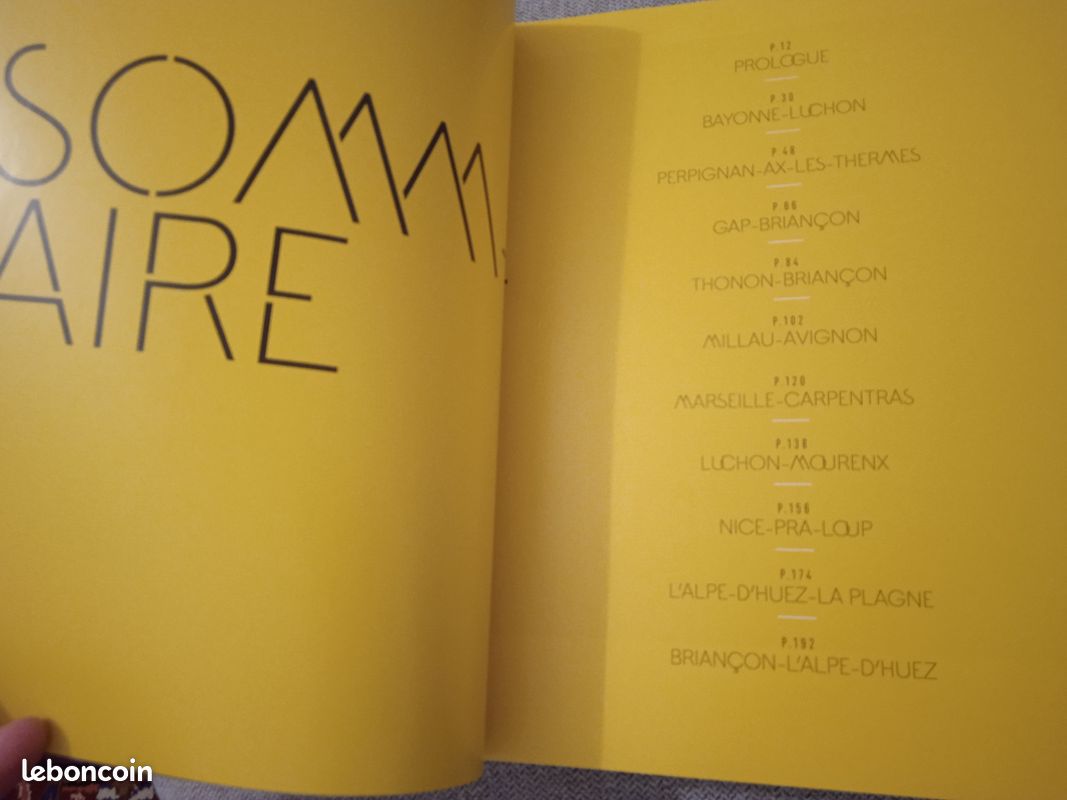 SOMM
AIRE
P.12
PROLOGUE
P.30
BAYONNE-LUCHON
P.48
PERPIGNAN-AX-LES-THERMES
P.66
GAP-BRIANÇON
P.84
THONON-BRIANÇON
P.102
MILLAU-AVIGNON
P.120
MARSEILLE-CARPENTRAS
P.138
LUCHON-MOURENX
P.156
NICE-PRA-LOUP
P.174
L'ALPE-D'HUEZ-LA PLAGNE
P.192
BRIANÇON-L'ALPE-D'HUEZ
leboncoin